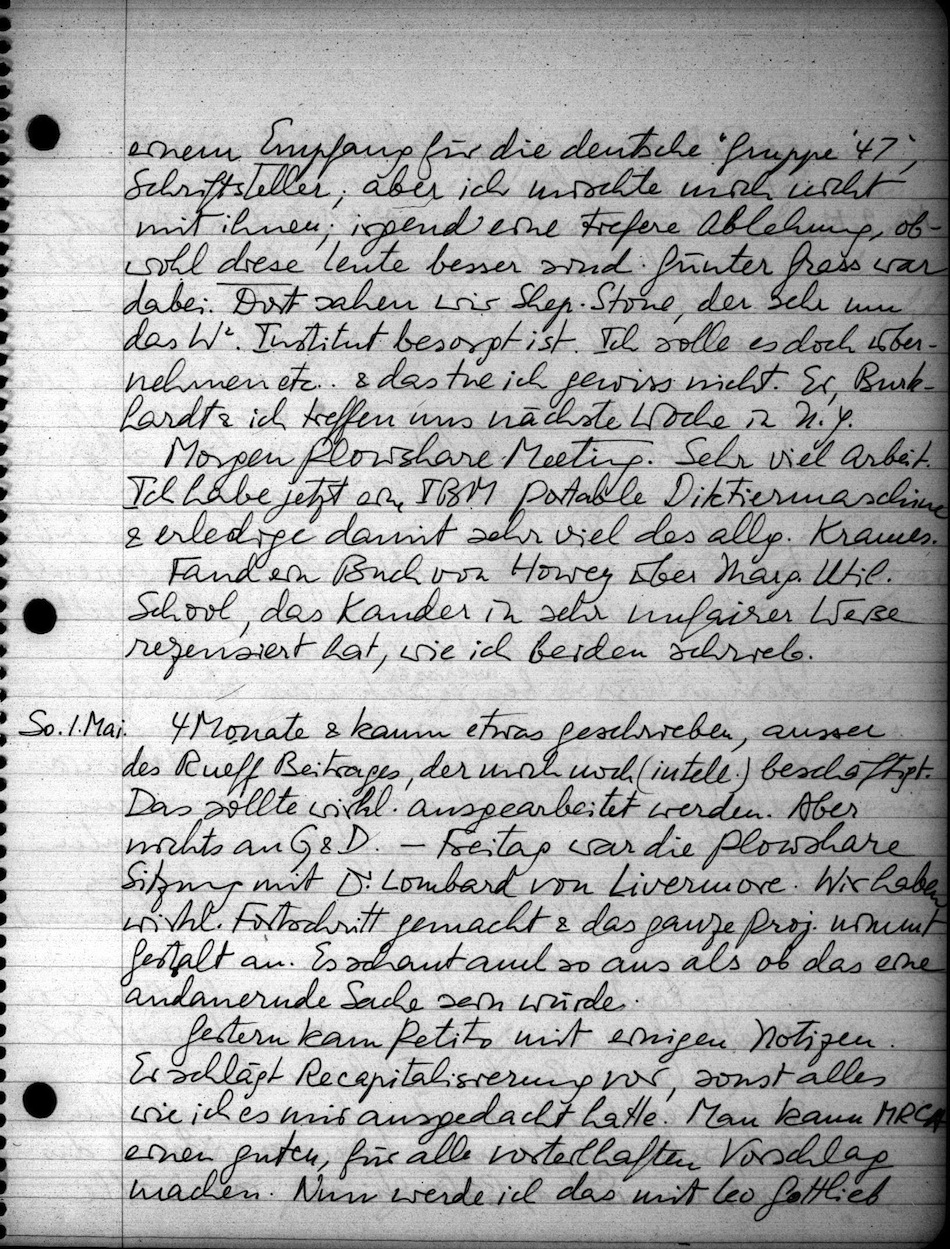 einem Empfang für die deutsche "Gruppe '47",
Schriftsteller; aber ich mischte mich nicht
mit ihnen; irgend eine tiefere Ablehnung, ob-
wohl diese Leute besser sind. Günter Grass war
dabei. Dort sahen wir Shep. Stone, der sehr um
das W². Institut besorgt ist. Ich solle es doch über-
nehmen etc.. & das tue ich gewiss nicht. Er, Burk-
hardt & ich treffen uns nächste Woche in N.Y.
Morgen Plowshare Meeting. Sehr viel Arbeit.
Ich habe jetzt ein IBM portable Diktiermaschine
& erledige damit sehr viel des allg. Krames.
Fand ein Buch von Howey über Marg. Util.
School, das Kauder in sehr unfairer Weise
rezensiert hat, wie ich beiden schrieb.
So. 1. Mai. 4 Monate & kaum etwas geschrieben, ausser
des Rueff Beitrages, der mich noch (intell.) beschäftigt.
Das sollte wirkl. ausgearbeitet werden. Aber
nichts an G&D. — Freitag war die Plowshare
Sitzung mit Dr. Lombard von Livermore. Wir haben
wirkl. Fortschritt gemacht & das ganze Proj. nimmt
Gestalt an. Es schaut auch so aus als ob das eine
andauernde Sache sein würde.
Gestern kam Petito mit einigen Notizen.
Er schlägt Recapitalisierung vor, sonst alles
wie ich es mir ausgedacht hatte. Man kann MRCA
einen guten, für alle vorteilhaften Vorschlag
machen. Nun werde ich das mit Leo Gottlieb